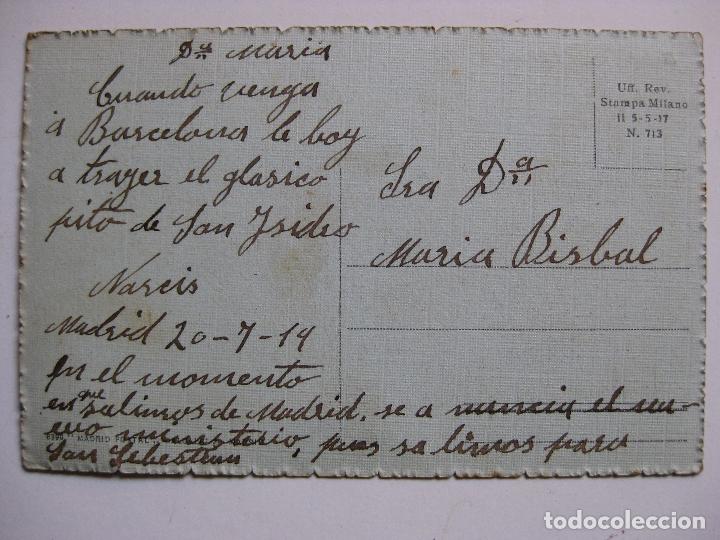 Dª Maria
Cuando venga
a Barcelona le boy
a trayer el glasico
pito de San Isidro
Narcis
Madrid 20-7-19
en el momento
en que salimos de Madrid, se a nuncia el nu-
evo ministerio, pues sa limos para
San Sebestian
MADRID
Uff. Rev.
Stampa Milano
11 5-5-17
N. 713
Sra Dª
Maria Bisbal
todocoleccion